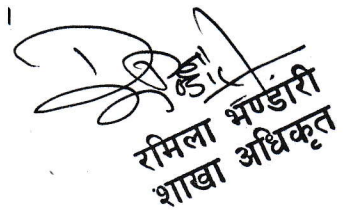 रमिला भण्डारी
शाखा अधिकृत